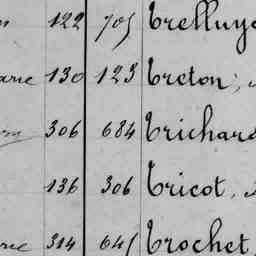 122 705 Trelluye
130 123 Treton,
306 684 Trichard
136 306 Tricot,
314 645 Trochet,